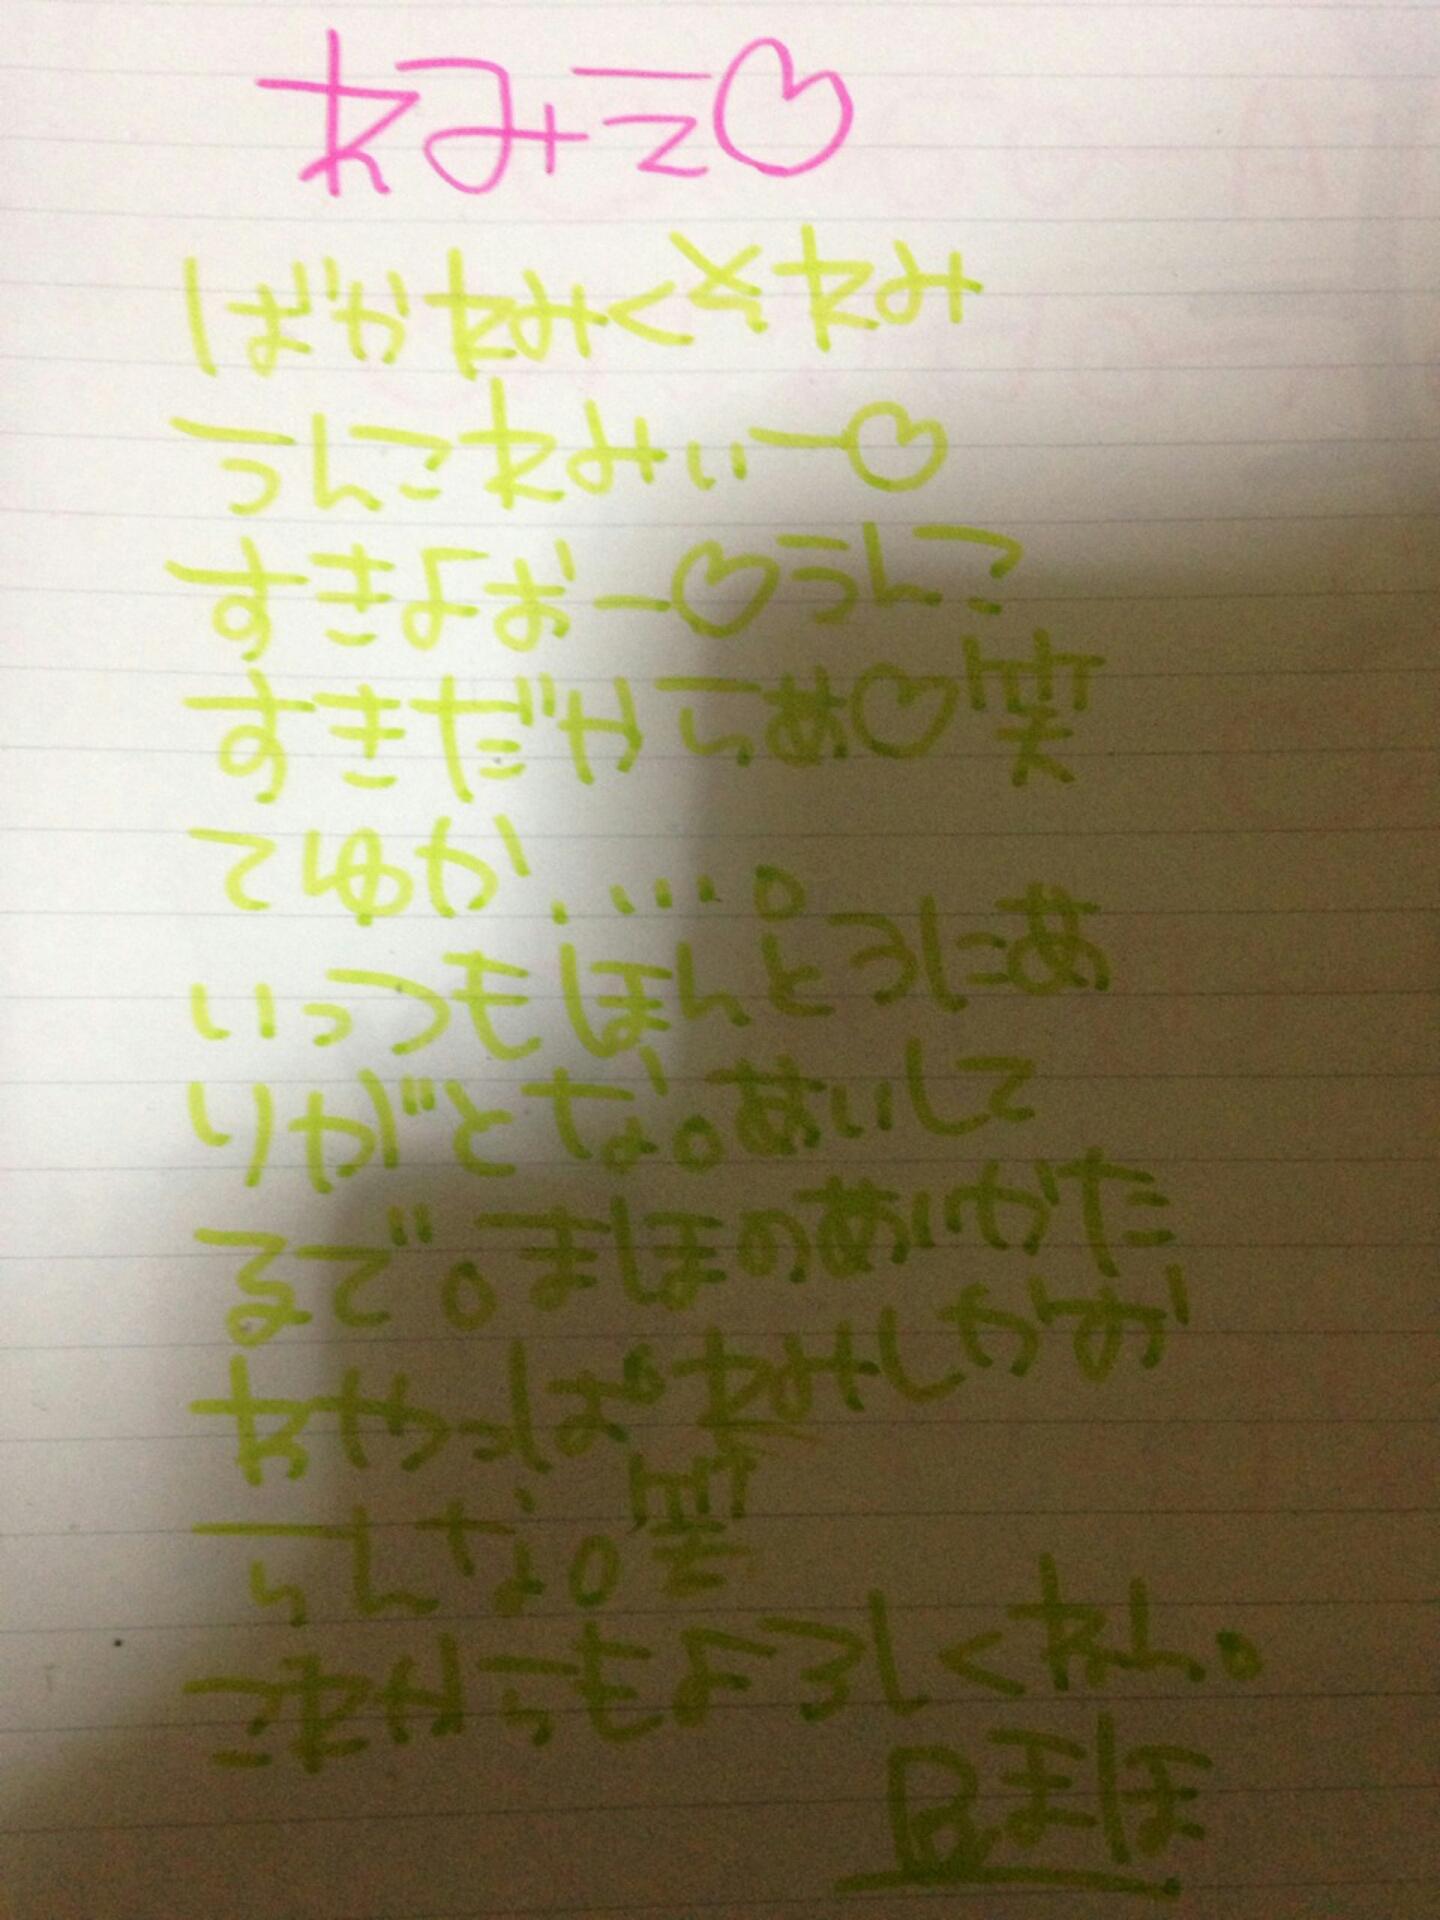 れみえ♡
ばかれみくそれみ
うんこれみぃー♡
すきよぉー♡うんこ
すきだからあ♡笑
てゆか.....。
いっつもほんとうにあ
りがとな。あいして
るで。まほのあいかた
わやっぱれみしかお
らんな。笑
これからもよろしくれん。
Bまほ